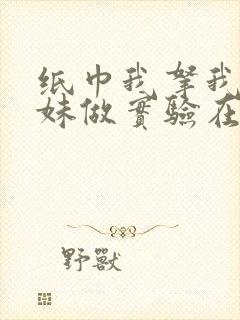 纸巾我拏我
妹做實驗在
野獸